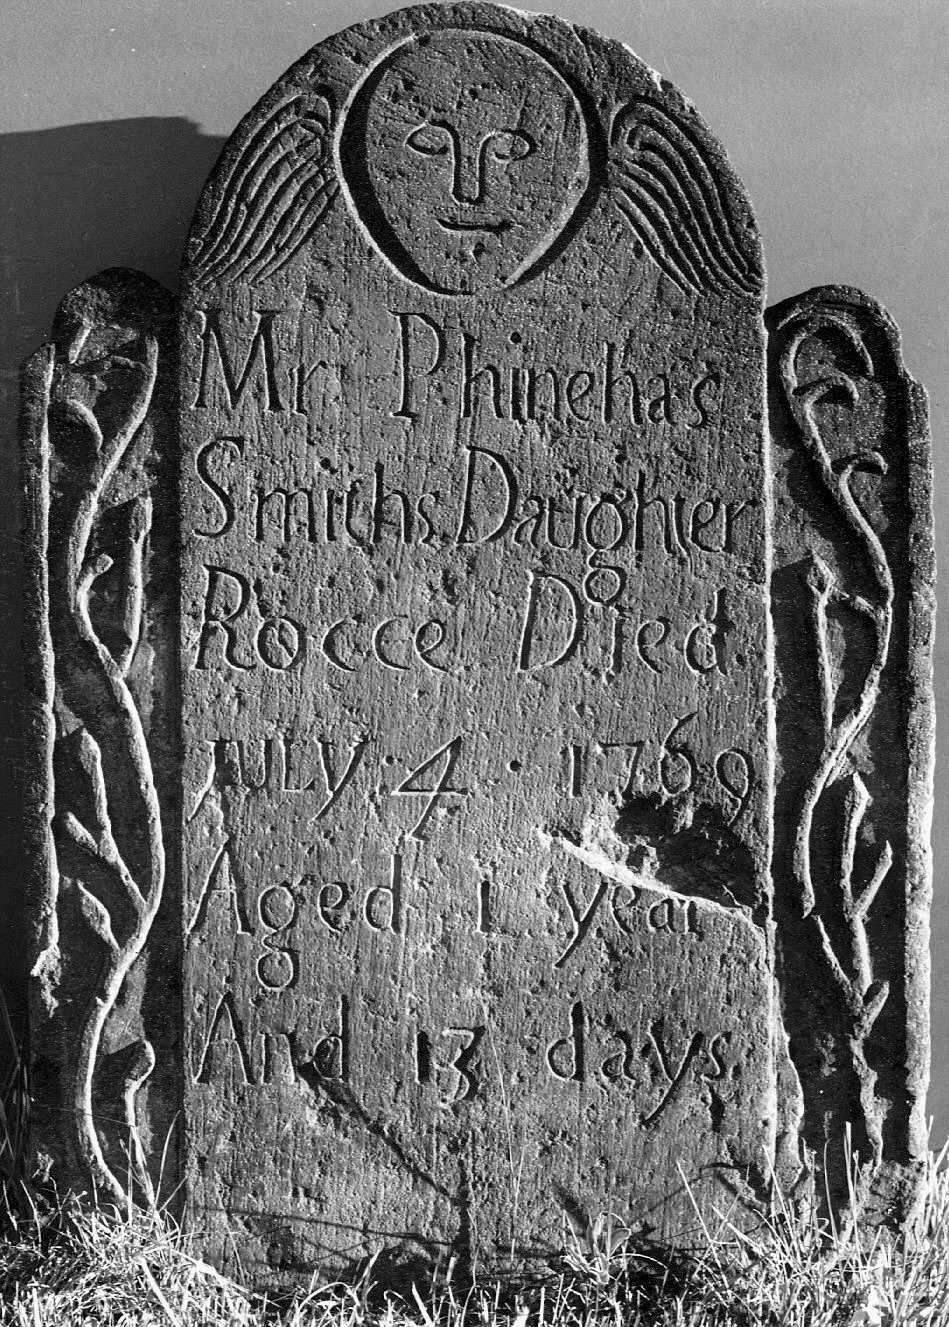 Mr Phinehas
Smiths Daughter
Rocce Died
JULY · 4 · 1769
Aged 1 year
And 13 days